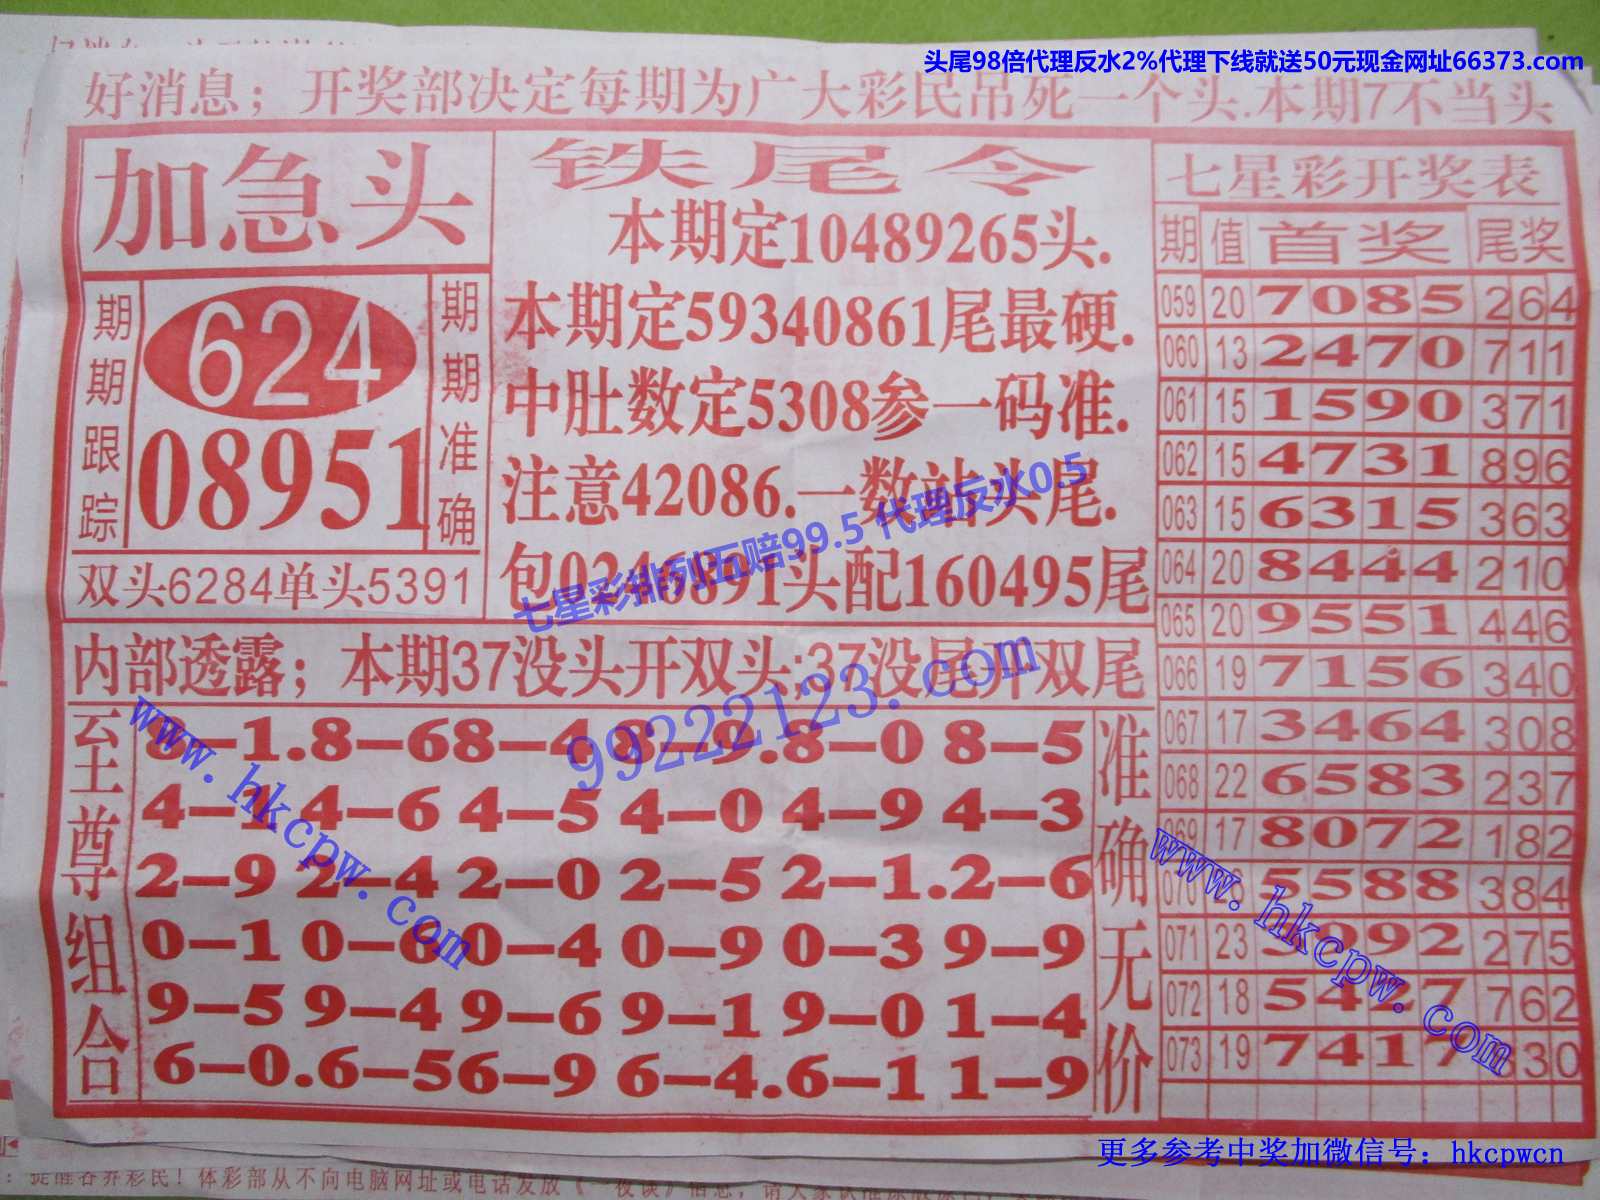 头尾98倍代理反水2%代理下线就送50元现金网址66373.com
好消息；开奖部决定每期为广大彩民吊死一个头.本期7不当头
加急头
期期跟踪
624
08951
期期准确
双头6284单头5391
铁尾令
本期定10489265头.
本期定59340861尾最硬.
中肚数定5308参一码准.
注意42086.一数站头尾.
包0246891头配160495尾
七星彩排列五赔99.5 代理反水0.5
99222123.com
内部透露；本期37没头开双头;37没尾开双尾
至尊组合
8-1.8-68-4 8-9.8-0 8-5
4-1 4-6 4-5 4-0 4-9 4-3
2-9 2-4 2-0 2-5 2-1.2-6
0-1 0-6 0-4 0-9 0-3 9-9
9-5 9-4 9-6 9-1 9-0 1-4
6-0.6-56-9 6-4.6-1 1-9
准确无价
www.hkcpw.com
七星彩开奖表
期 值 首奖 尾奖
059 20 7085 264
060 13 2470 711
061 15 1590 371
062 15 4731 896
063 15 6315 363
064 20 8444 210
065 20 9551 446
066 19 7156 340
067 17 3464 308
068 22 6583 237
069 17 8072 182
070 5588 384
071 23 992 275
072 18 5427 762
073 19 7417 30
www.hkcpw.com
更多参考中奖加微信号：hkcpwcn
提醒各界彩民！体彩部从不向电脑网址或电话发放《一夜谈》信息，